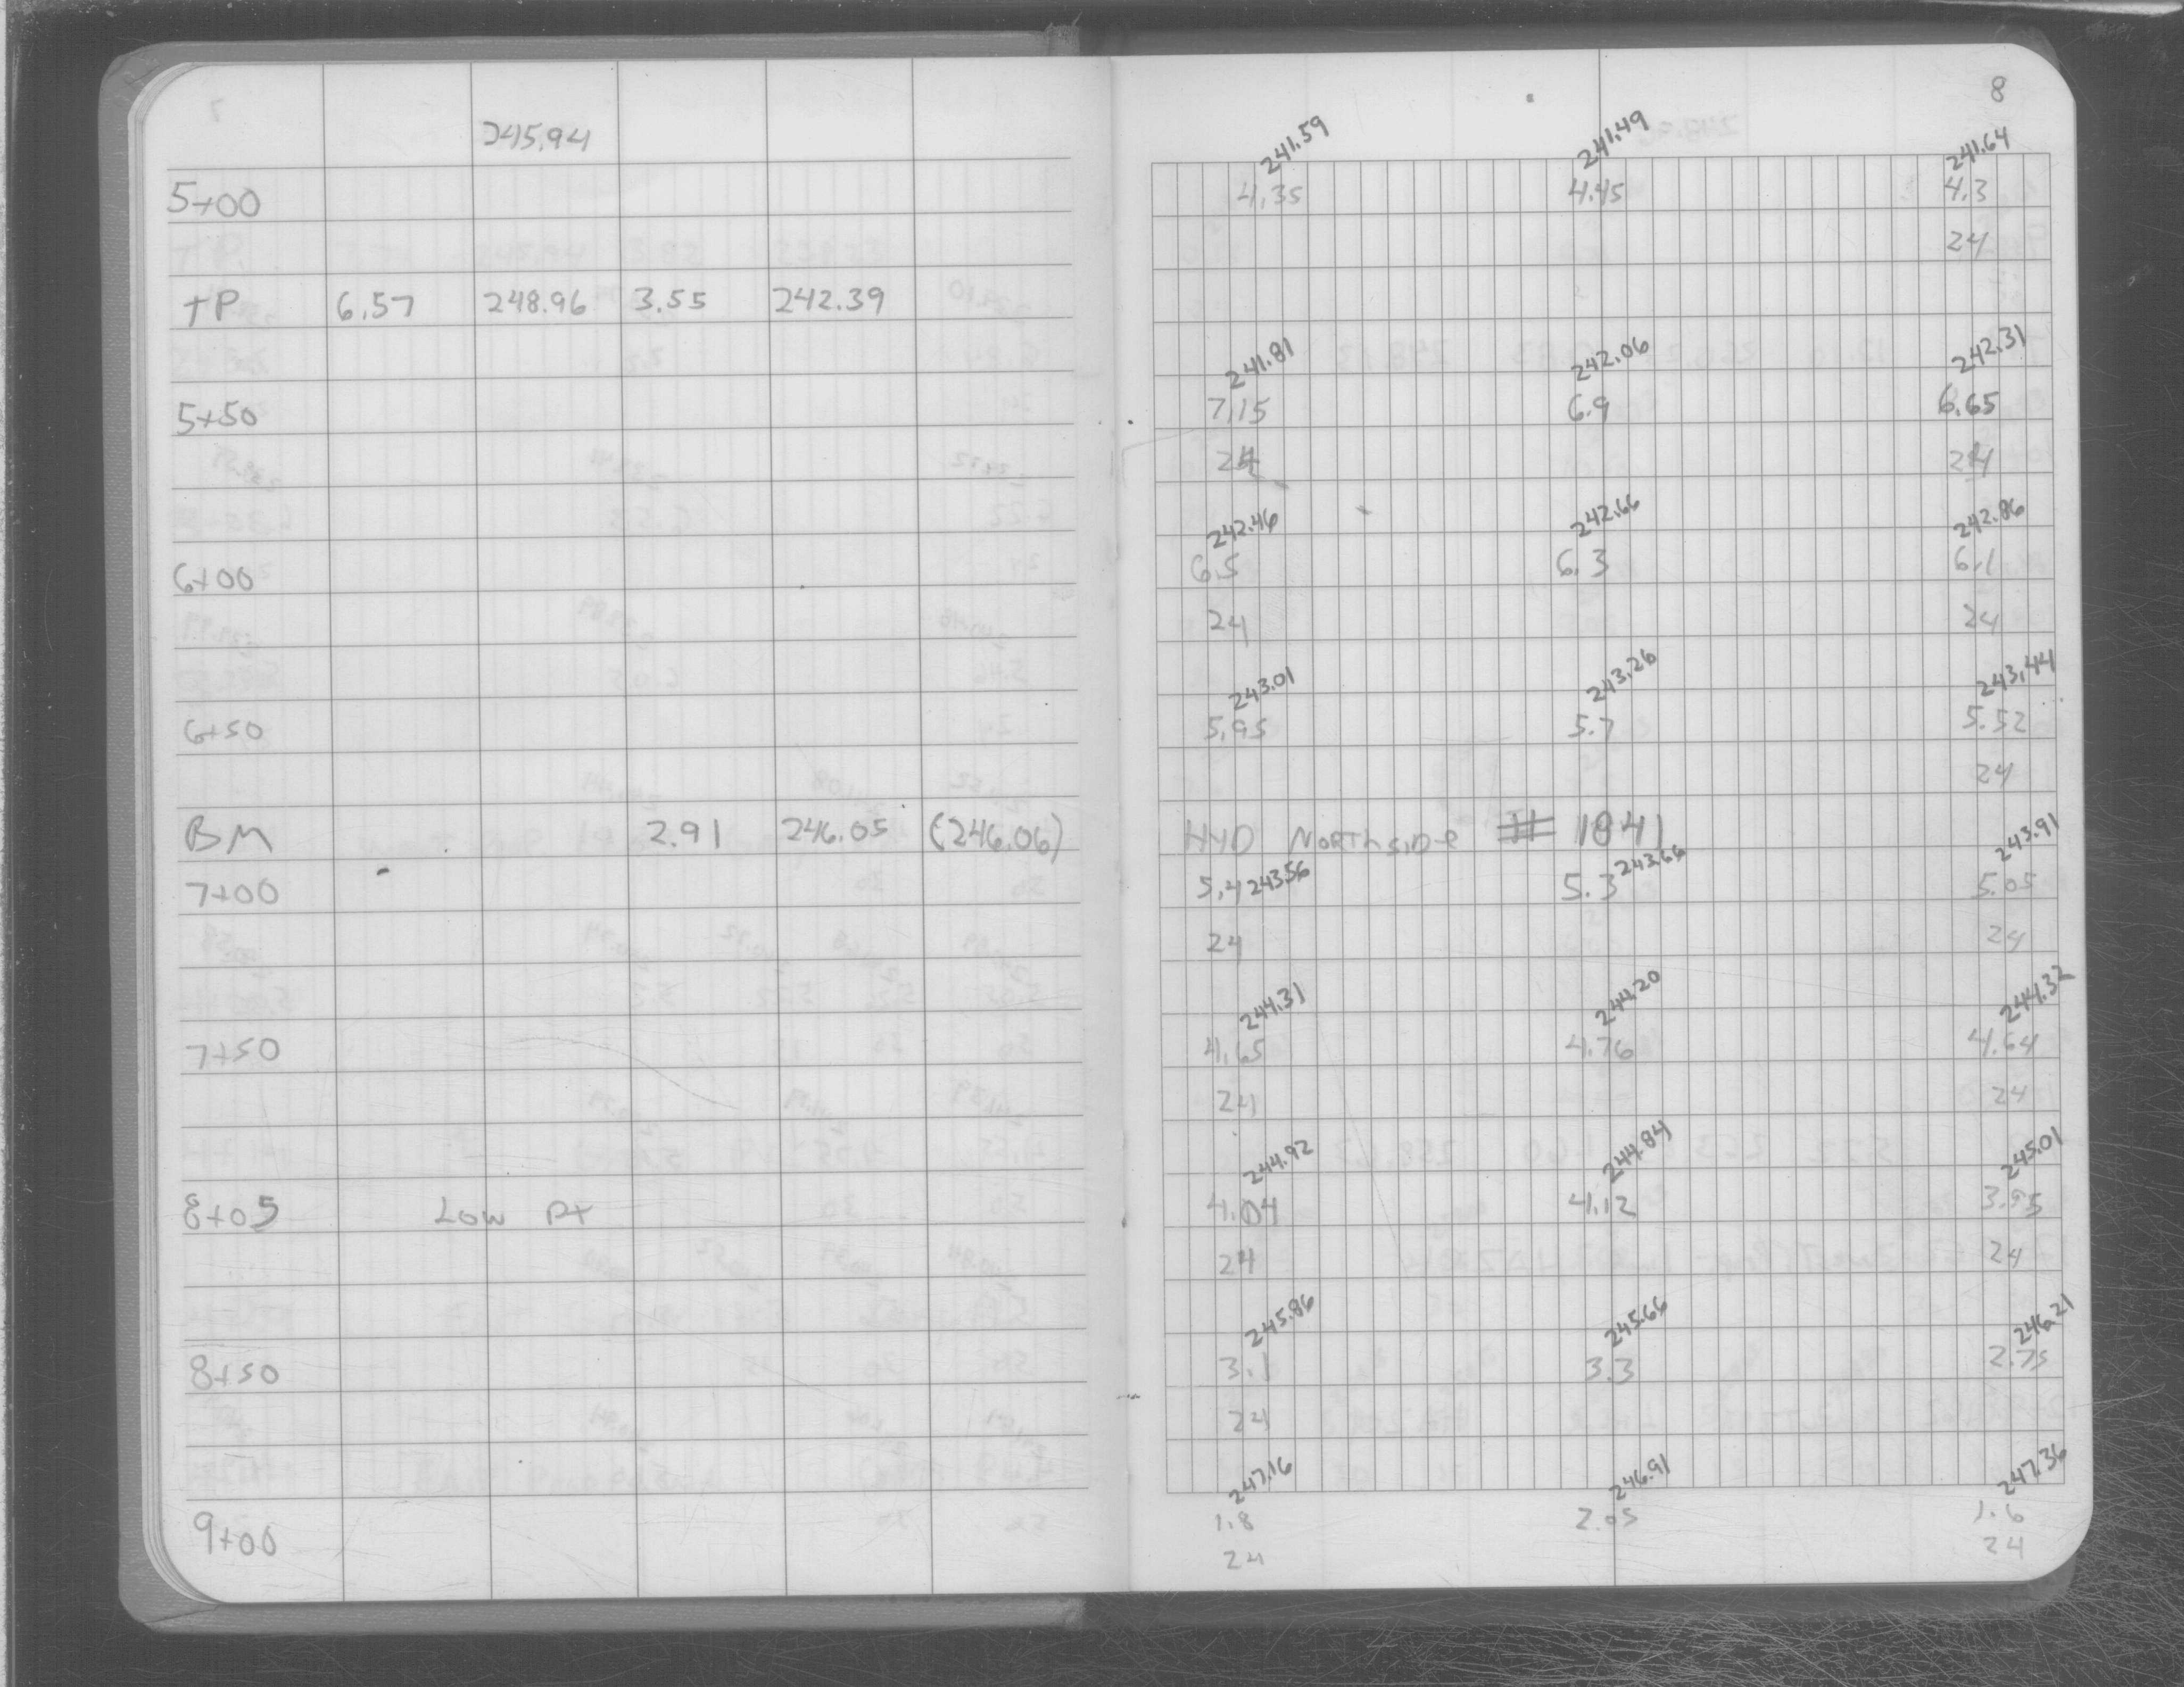 8
245.94
241.59 241.49 241.64
5+00 4.35 4.45 4.3
24
TP 6.57 248.96 3.55 242.39
241.81 242.06 242.31
5+50 7.15 6.9 6.65
24 24
242.46 242.66 242.86
6+00 6.5 6.3 6.1
24 24
243.01 243.26 243.44
6+50 5.95 5.7 5.52
24
BM 2.91 246.05 (246.06) HYD NORTHSIDE # 1841
243.91
7+00 5.4 243.56 5.3 243.66 5.05
24 24
244.31 244.20 244.32
7+50 4.65 4.76 4.64
24 24
244.92 244.84 245.01
8+05 LOW PT 4.04 4.12 3.95
24 24
245.86 245.66 246.21
8+50 3.1 3.3 2.75
24
247.16 246.91 247.36
9+00 1.8 2.05 1.6
24 24